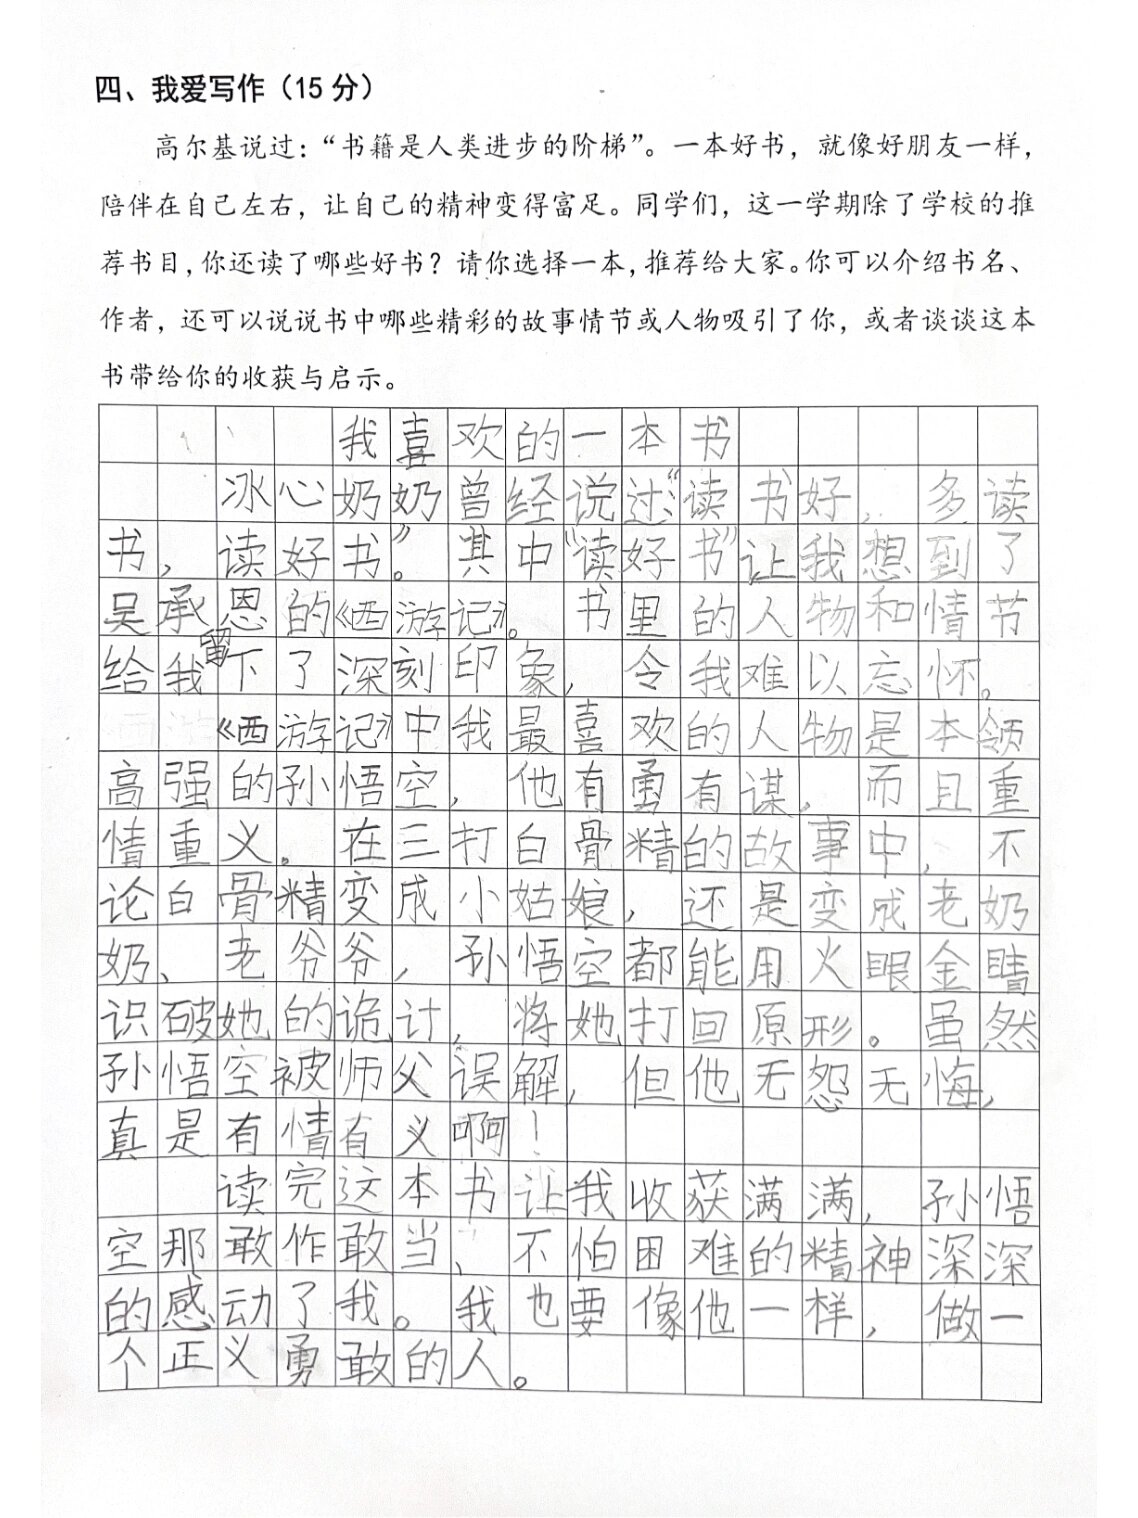 四、我爱写作（15 分）
高尔基说过：“书籍是人类进步的阶梯”。一本好书，就像好朋友一样，
陪伴在自己左右，让自己的精神变得富足。同学们，这一学期除了学校的推
荐书目，你还读了哪些好书？请你选择一本，推荐给大家。你可以介绍书名、
作者，还可以说说书中哪些精彩的故事情节或人物吸引了你，或者谈谈这本
书带给你的收获与启示。
我喜欢的一本书
冰心奶奶曾经说过：“读书好，多读
书，读好书”。其中“读好书”让我想到了
吴承恩的《西游记》。书里的人物和情节
给我留下了深刻印象，令我难以忘怀。
《西游记》中我最喜欢的人物是本领
高强的孙悟空，他有勇有谋，而且重
情重义。在三打白骨精的故事中，不
论白骨精变成小姑娘，还是变成老奶
奶、老爷爷，孙悟空都能用火眼金睛
识破她的诡计，将她打回原形。虽然
孙悟空被师父误解，但他无怨无悔，
真是有情有义啊！
读完这本书让我收获满满，孙悟
空那敢作敢当、不怕困难的精神深深
的感动了我。我也要像他一样，做一
个正义勇敢的人。